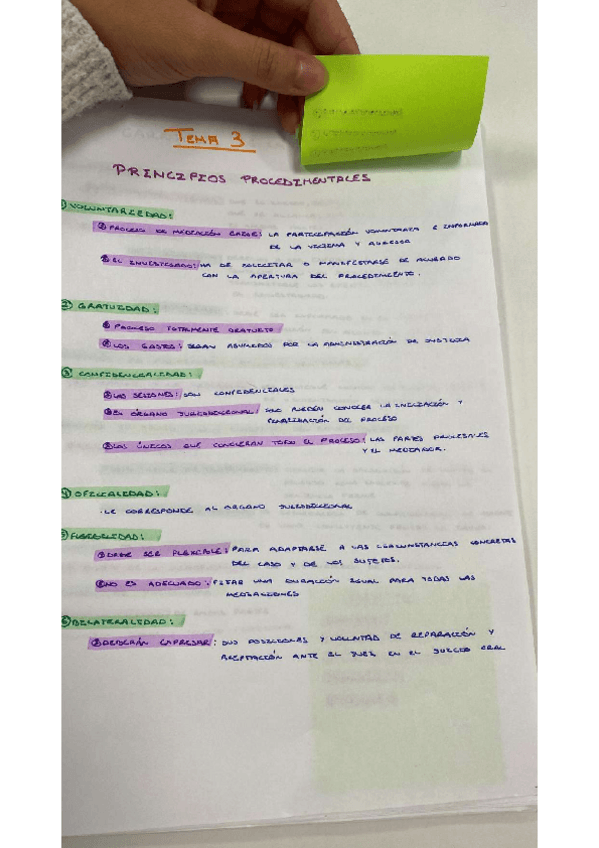 TEMA 3
PRINCIPIOS PROCEDIMENTALES
① VOLUNTARIEDAD:
① PROCESO DE MEDIACIÓN EXIGE: LA PARTICIPACIÓN VOLUNTARIA E INFORMADA
DE LA VÍCTIMA Y AGRESOR
② EL INVESTIGADO: HA DE SOLICITAR O MANIFESTARSE DE ACUERDO
CON LA APERTURA DEL PROCEDIMIENTO.
② GRATUIDAD:
① PROCESO TOTALMENTE GRATUITO
② LOS GASTOS: SERÁN ASUMIDOS POR LA ADMINISTRACIÓN DE JUSTICIA
③ CONFIDENCIALIDAD:
① LAS SESIONES: SON CONFIDENCIALES
② EL ÓRGANO JURISDICCIONAL: SOLO PUEDEN CONOCER LA INICIACIÓN Y
FINALIZACIÓN DEL PROCESO
③ LOS ÚNICOS QUE CONOCERAN TODO EL PROCESO: LAS PARTES PROCESALES
Y EL MEDIADOR.
④ OFICIALIDAD:
· LE CORRESPONDE AL ORGANO JURISDICCIONAL
⑤ FLEXIBILIDAD:
① DEBE SER FLEXIBLE: PARA ADAPTARSE A LAS CIRCUNSTANCIAS CONCRETAS
DEL CASO Y DE LOS SUJETOS.
② NO ES ADECUADO: FIJAR UNA DURACIÓN IGUAL PARA TODAS LAS
MEDIACIONES
⑥ BILATERALIDAD:
① DEBERÁN EXPRESAR: SUS POSICIONES Y VOLUNTAD DE REPARACIÓN Y
ACEPTACIÓN ANTE EL JUEZ EN EL JUICIO ORAL